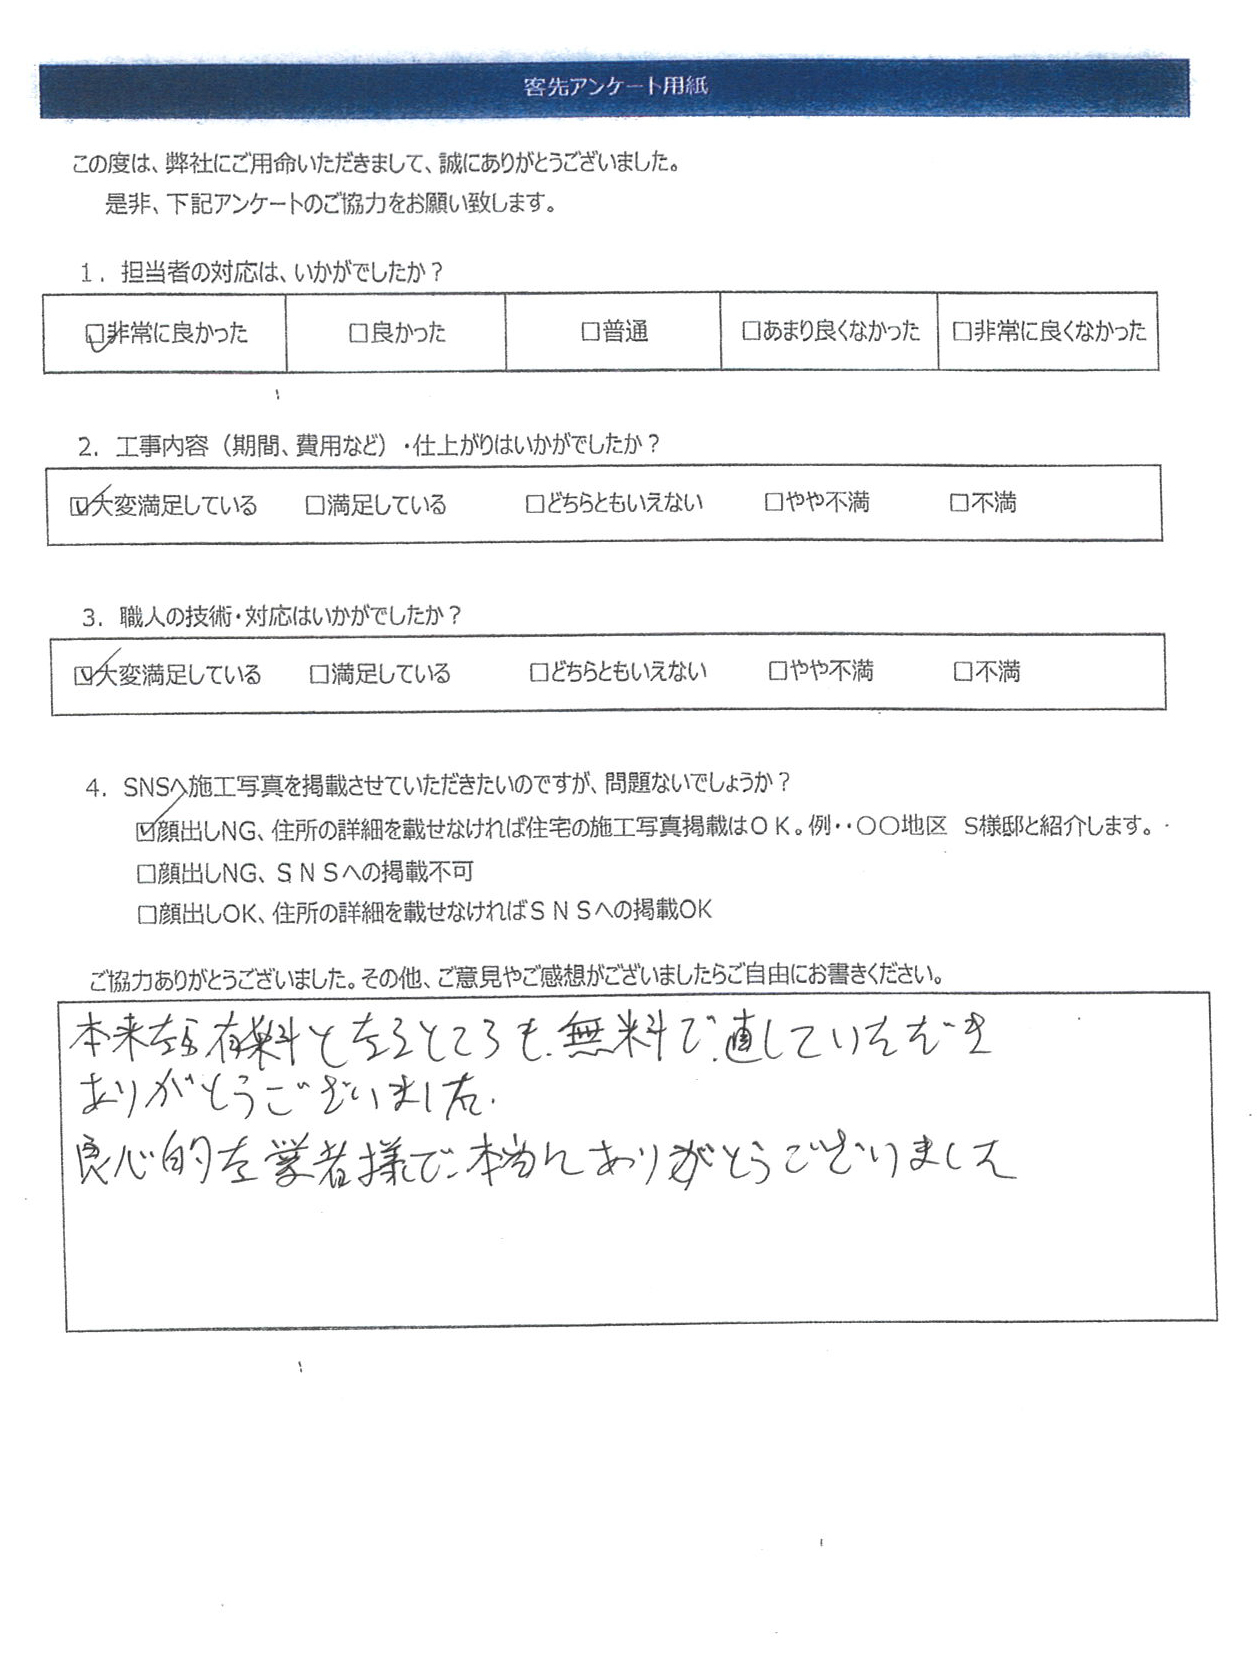 客先アンケート用紙
この度は、弊社にご用命いただきまして、誠にありがとうございました。
是非、下記アンケートのご協力をお願い致します。
1. 担当者の対応は、いかがでしたか？
☑非常に良かった □良かった □普通 □あまり良くなかった □非常に良くなかった
2. 工事内容（期間、費用など）・仕上がりはいかがでしたか？
☑大変満足している □満足している □どちらともいえない □やや不満 □不満
3. 職人の技術・対応はいかがでしたか？
☑大変満足している □満足している □どちらともいえない □やや不満 □不満
4. SNSへ施工写真を掲載させていただきたいのですが、問題ないでしょうか？
☑顔出しNG、住所の詳細を載せなければ住宅の施工写真掲載はＯＫ。例・・〇〇地区 S様邸と紹介します。
□顔出しNG、ＳＮＳへの掲載不可
□顔出しOK、住所の詳細を載せなければＳＮＳへの掲載OK
ご協力ありがとうございました。その他、ご意見やご感想がございましたらご自由にお書きください。
本来なら有料となるところも、無料で直していただき
ありがとうございました.
良心的な業者様で、本当にありがとうございました